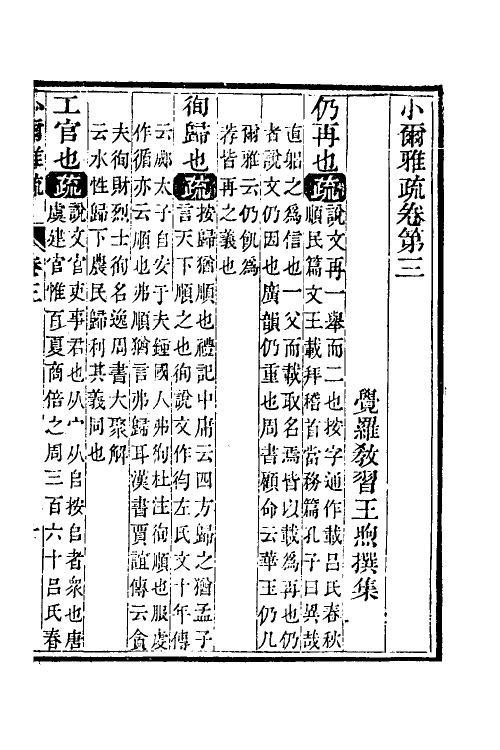 小爾雅疏卷第三
覺羅教習王煦撰集
仍再也疏
說文再一舉而二也按字通作載呂氏春秋
順民篇文王載拜稽首當務篇孔子曰異哉
直躬之爲信也一父而載取名焉皆以載爲再也仍
者說文仍因也廣韻仍重也周書顧命云華玉仍几
爾雅云仍飢爲
荐皆再之義也
徇歸也疏
按歸猶順也禮記中庸云四方歸之猶孟子
言天下順之也徇說文作侚左氏文十年傳
云郕太子自安于夫鍾國人弗徇杜注徇順也服虔
作循亦云順也弗順猶言弗歸耳漢書賈誼傳云貪
夫徇財烈士徇名逸周書大聚解
云水性歸下農民歸利其義同也
工官也疏
說文官吏事君也从宀从𠂤按𠂤者衆也唐
虞建官惟百夏商倍之周三百六十呂氏春
小爾雅疏 卷三 一